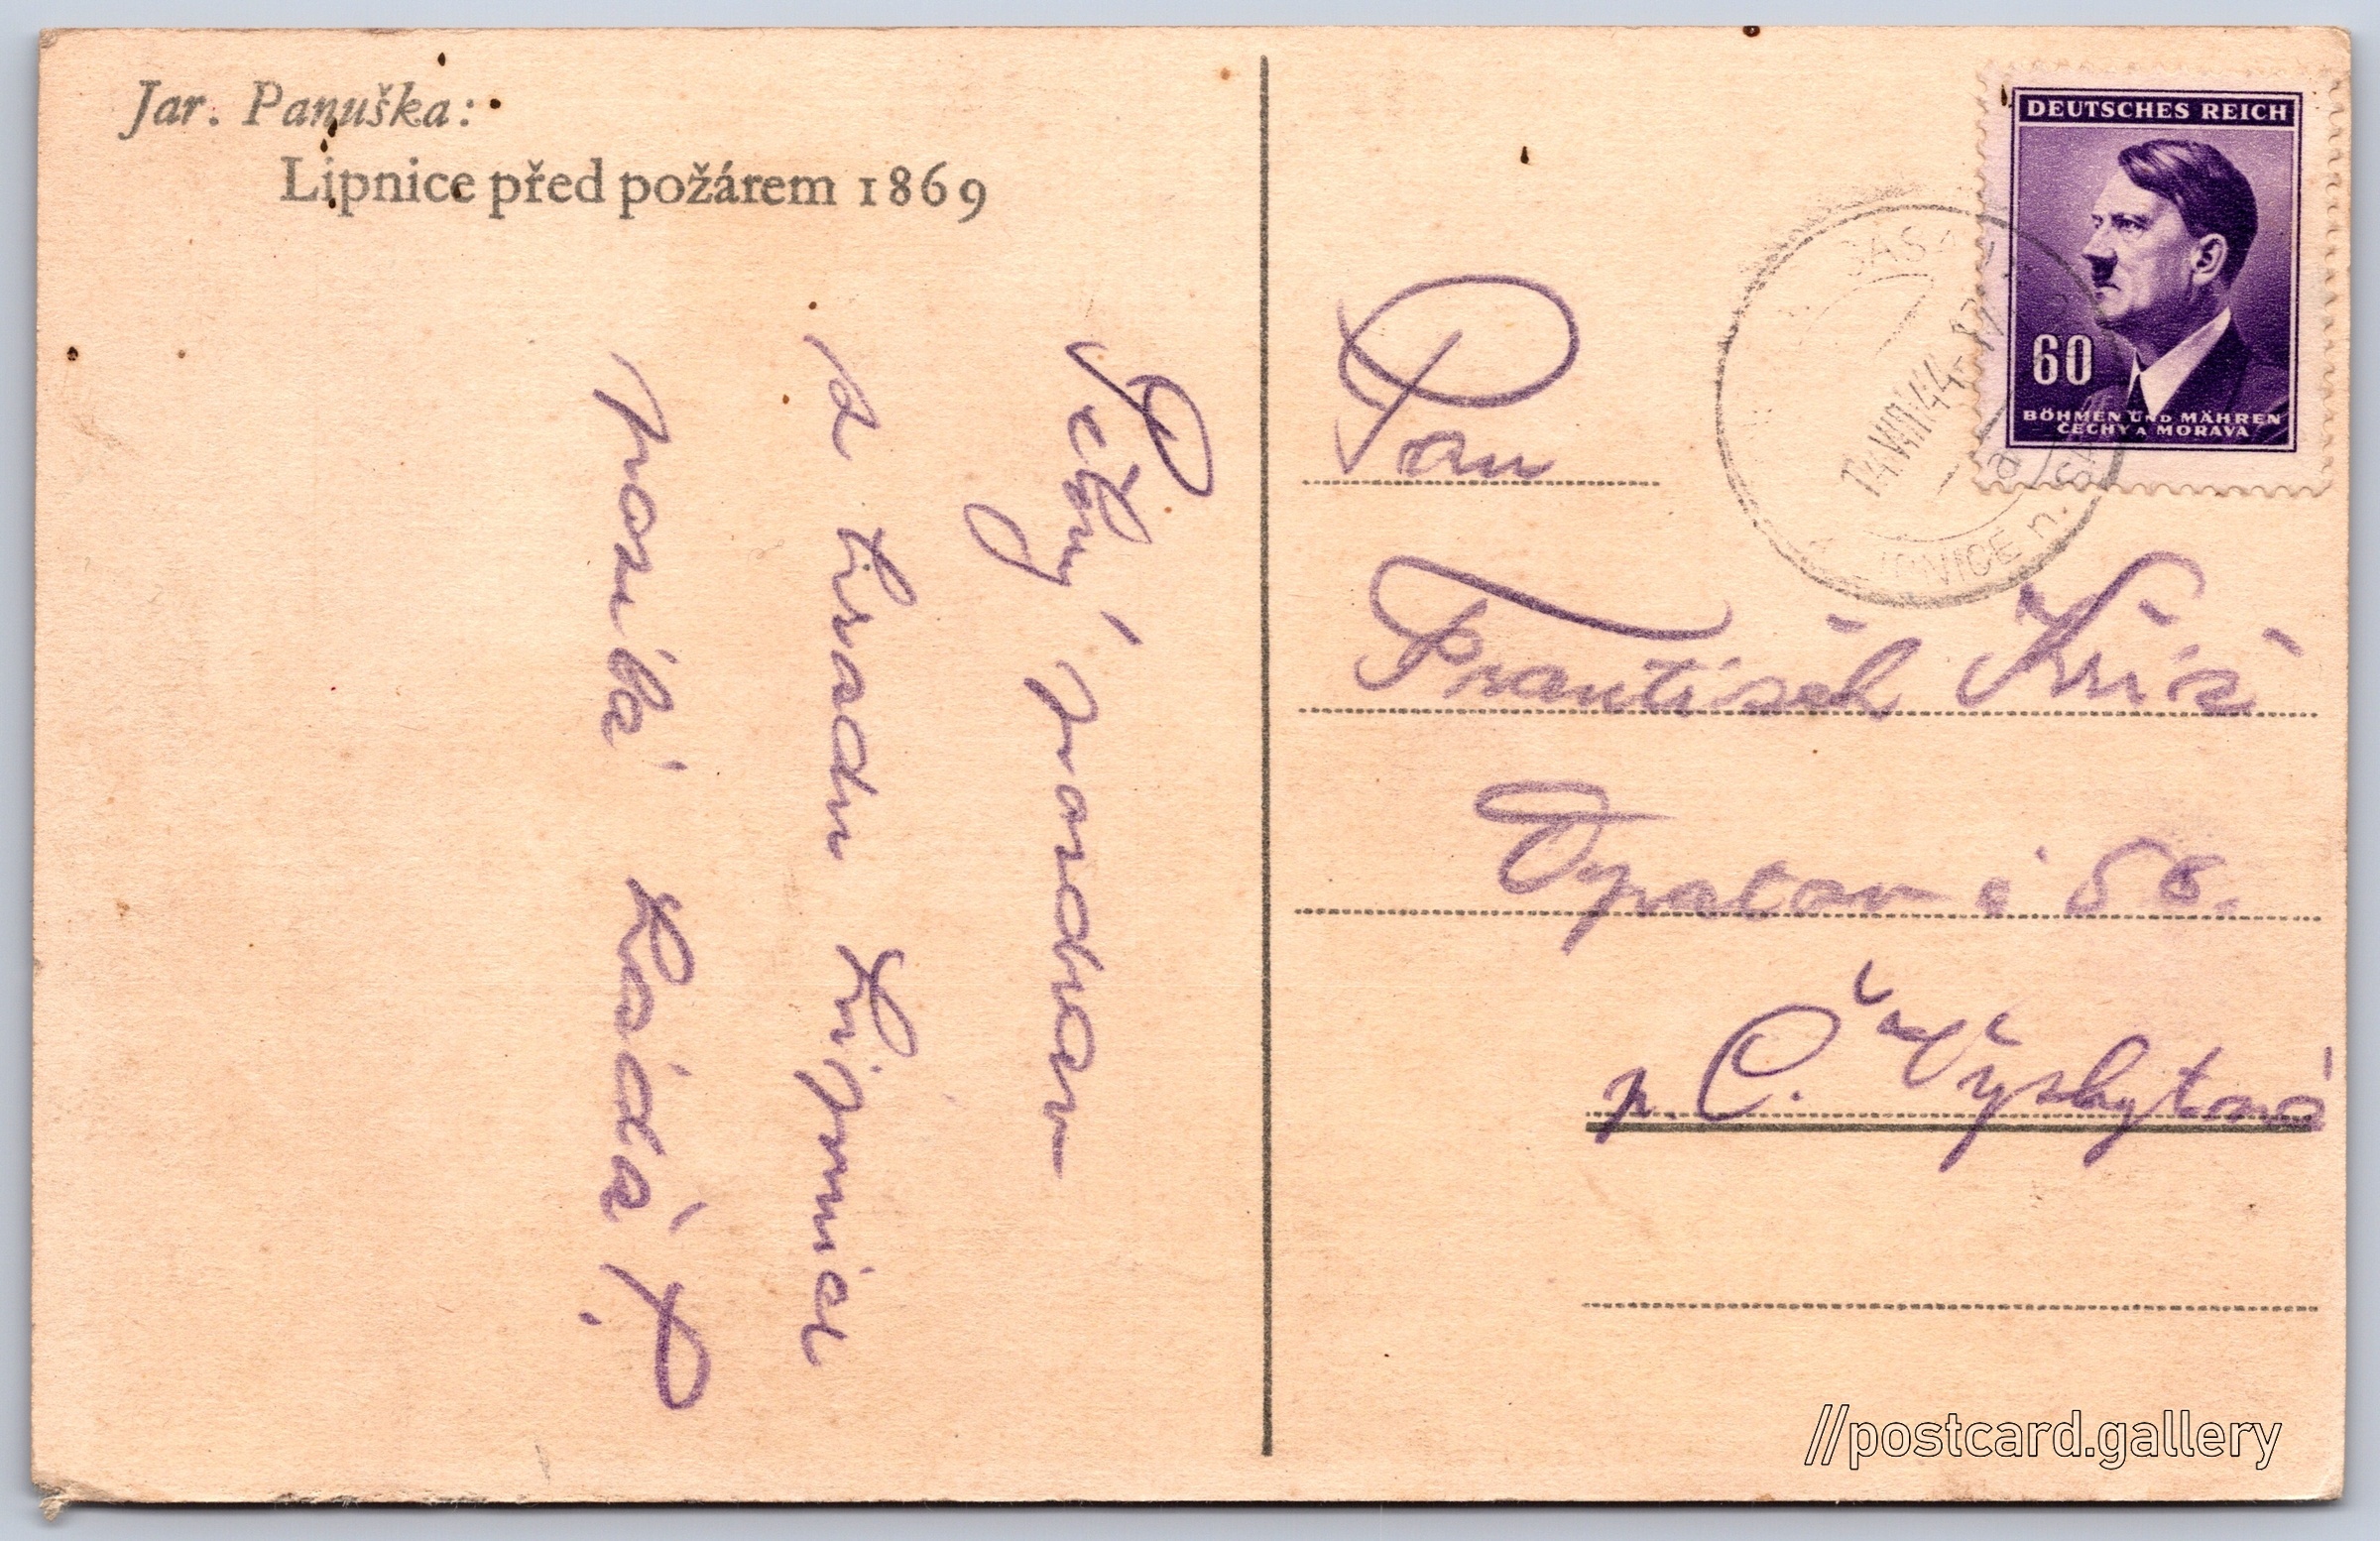 Jar. Panuška:
Lipnice před požárem 1869
Pěkný pozdrav
z hradu Lipnice
posílá Láďa P.
DEUTSCHES REICH
60
BÖHMEN UND MÄHREN
ČECHY A MORAVA
14.VIII.44
Pan
František Kříž
Opatov č 56.
p. Č. Vyskytná
//postcard.gallery